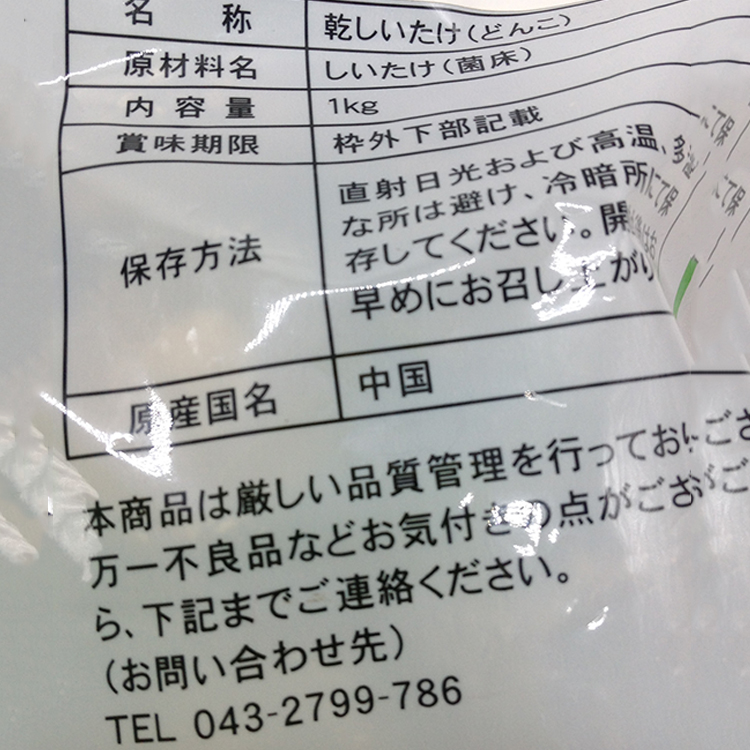 名称 乾しいたけ(どんこ)
原材料名 しいたけ(菌床)
内容量 1kg
賞味期限 枠外下部記載
保存方法 直射日光および高温、多湿
な所は避け、冷暗所にて保
存してください。開
早めにお召し上がり
原産国名 中国
本商品は厳しい品質管理を行っており、ござ
万一不良品などお気付きの点がござ
ら、下記までご連絡ください。
(お問い合わせ先)
TEL 043-2799-786